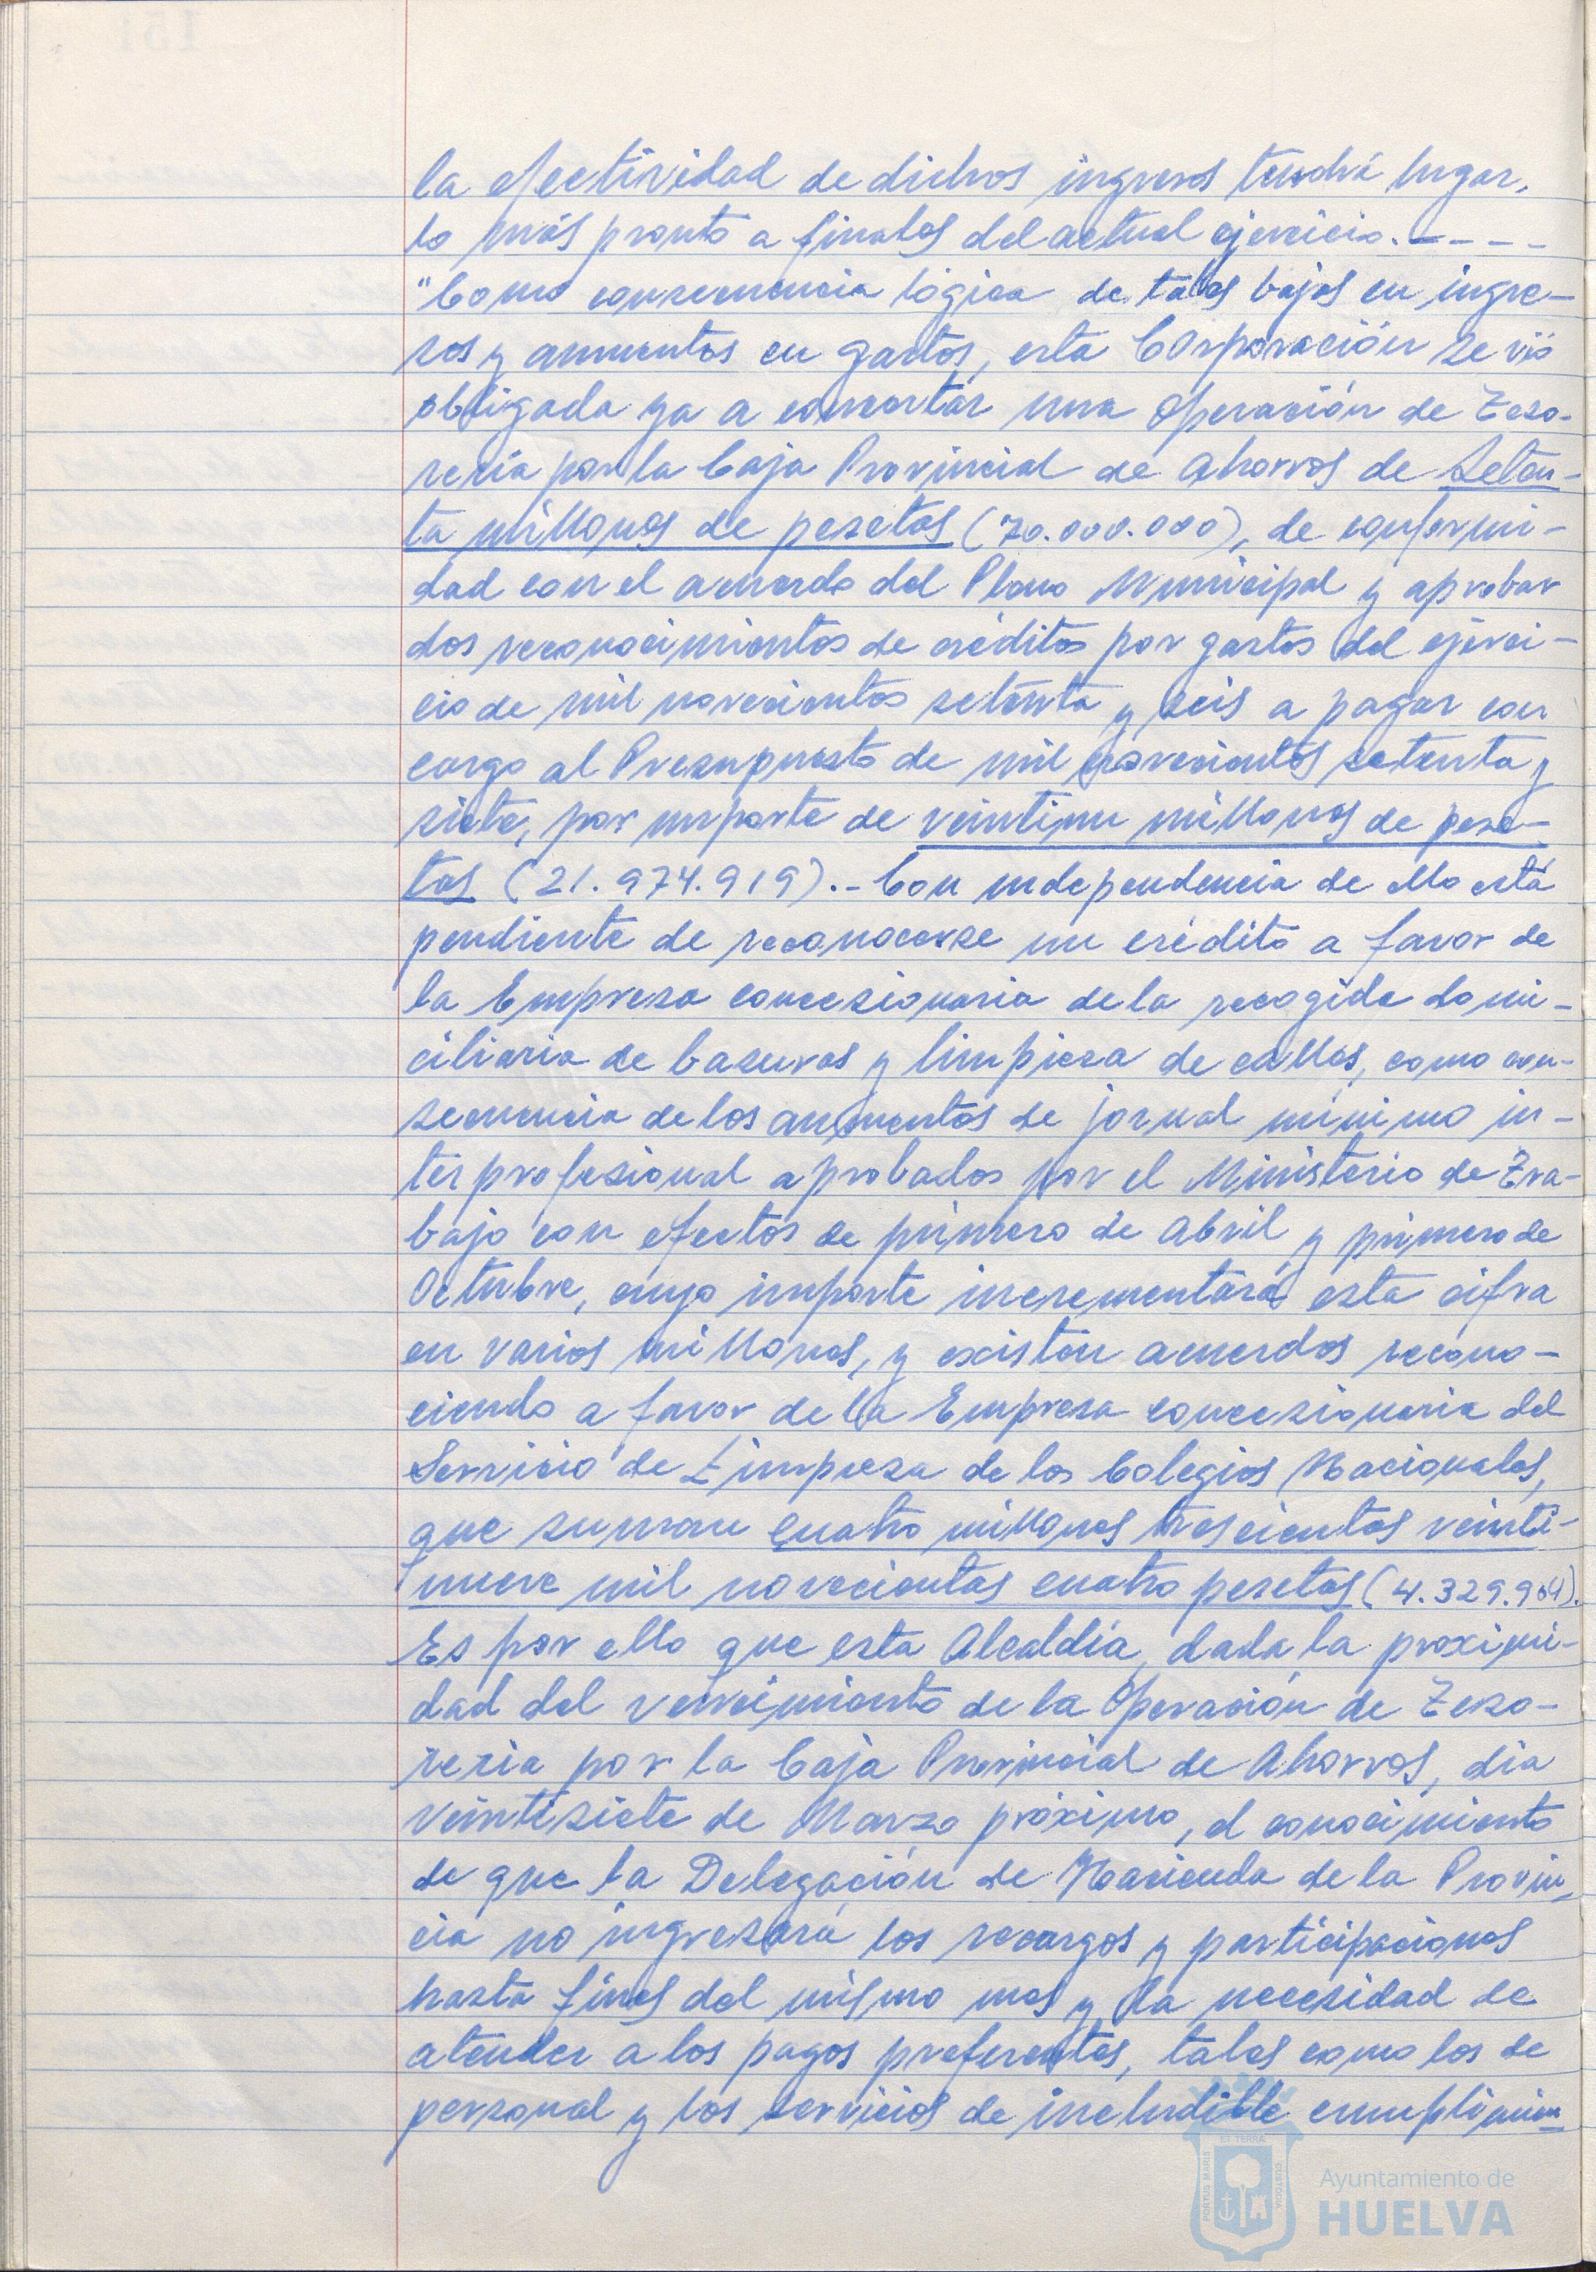 la efectividad de dichos ingresos tendrá lugar,
lo más pronto a finales del actual ejercicio.----
"Como consecuencia lógica de tales bajas en ingre-
sos y aumentos en gastos, esta Corporación se vió
obligada ya a concertar una Operación de Teso-
rería por la Caja Provincial de Ahorros de Seten-
ta millones de pesetas (70.000.000), de conformi-
dad con el acuerdo del Pleno Municipal y aprobar
dos reconocimientos de créditos por gastos del ejerci-
cio de mil novecientos setenta y seis a pagar con
cargo al Presupuesto de mil novecientos setenta y
siete, por importe de veintiun millones de pese-
tas (21.974.919).- Con independencia de ello está
pendiente de reconocerse un crédito a favor de
la Empresa concesionaria de la recogida domi-
ciliaria de basuras y limpieza de calles, como con-
secuencia de los aumentos de jornal mínimo in-
terprofesional aprobados por el Ministerio de Tra-
bajo con efectos de primero de Abril y primero de
Octubre, cuyo importe incrementará esta cifra
en varios millones, y existen acuerdos recono-
ciendo a favor de la Empresa concesionaria del
Servicio de Limpieza de los Colegios Nacionales,
que suman cuatro millones trescientas veinti-
nueve mil novecientas cuatro pesetas (4.329.904).
Es por ello que esta Alcaldía, dada la proximi-
dad del vencimiento de la Operación de Teso-
rería por la Caja Provincial de Ahorros, día
veintisiete de Marzo próximo, el conocimiento
de que la Delegación de Hacienda de la Provin-
cia no ingresará los recargos y participaciones
hasta fines del mismo mes y la necesidad de
atender a los pagos preferentes, tales como los de
personal y los servicios de ineludible cumplimien-
PORTUS MARIS ET TERRAE CUSTODIA
Ayuntamiento de
HUELVA